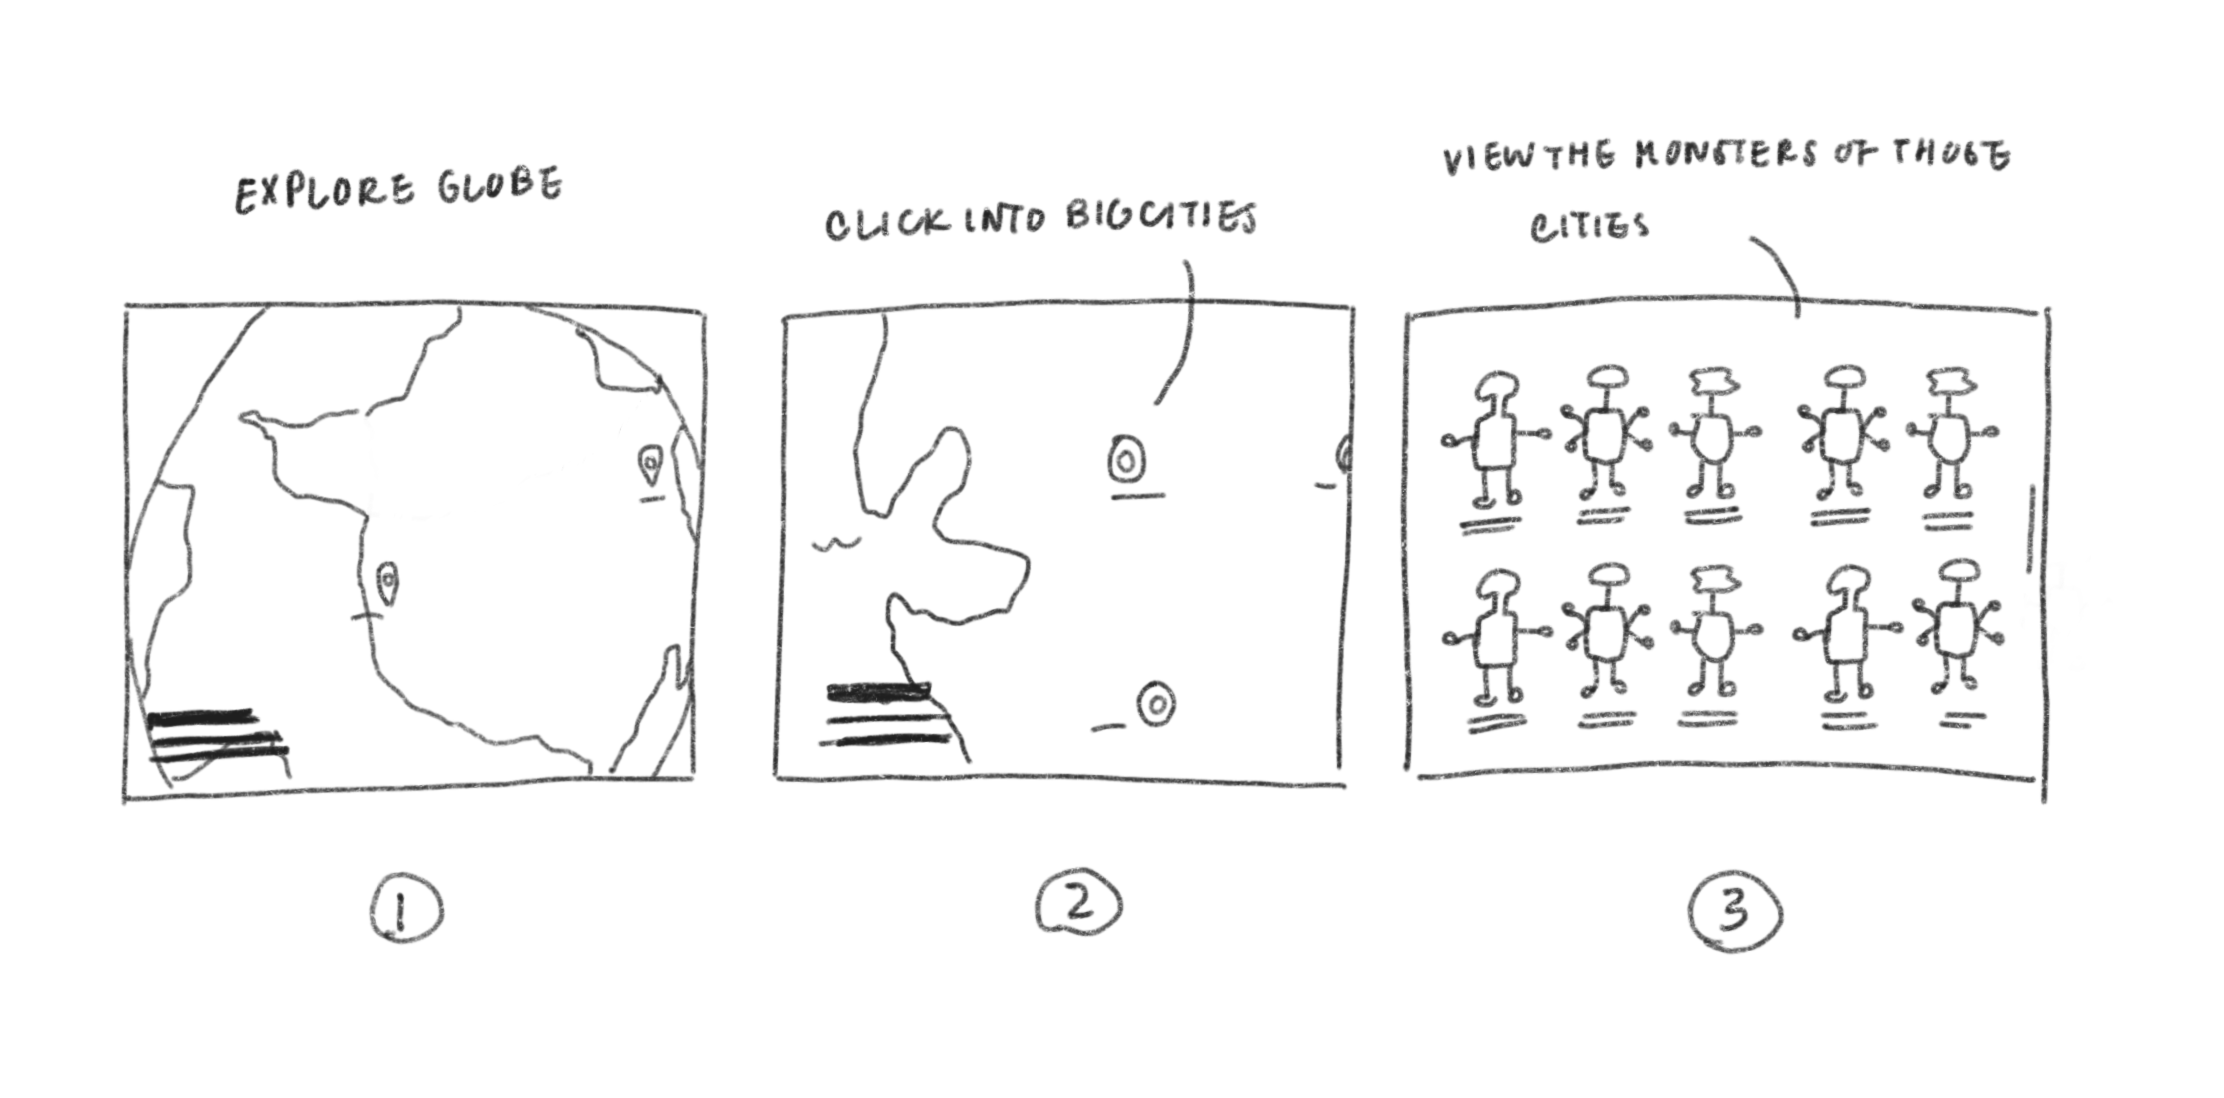 EXPLORE GLOBE
CLICK INTO BIG CITIES
VIEW THE MONSTERS OF THOSE
CITIES
1
2
3